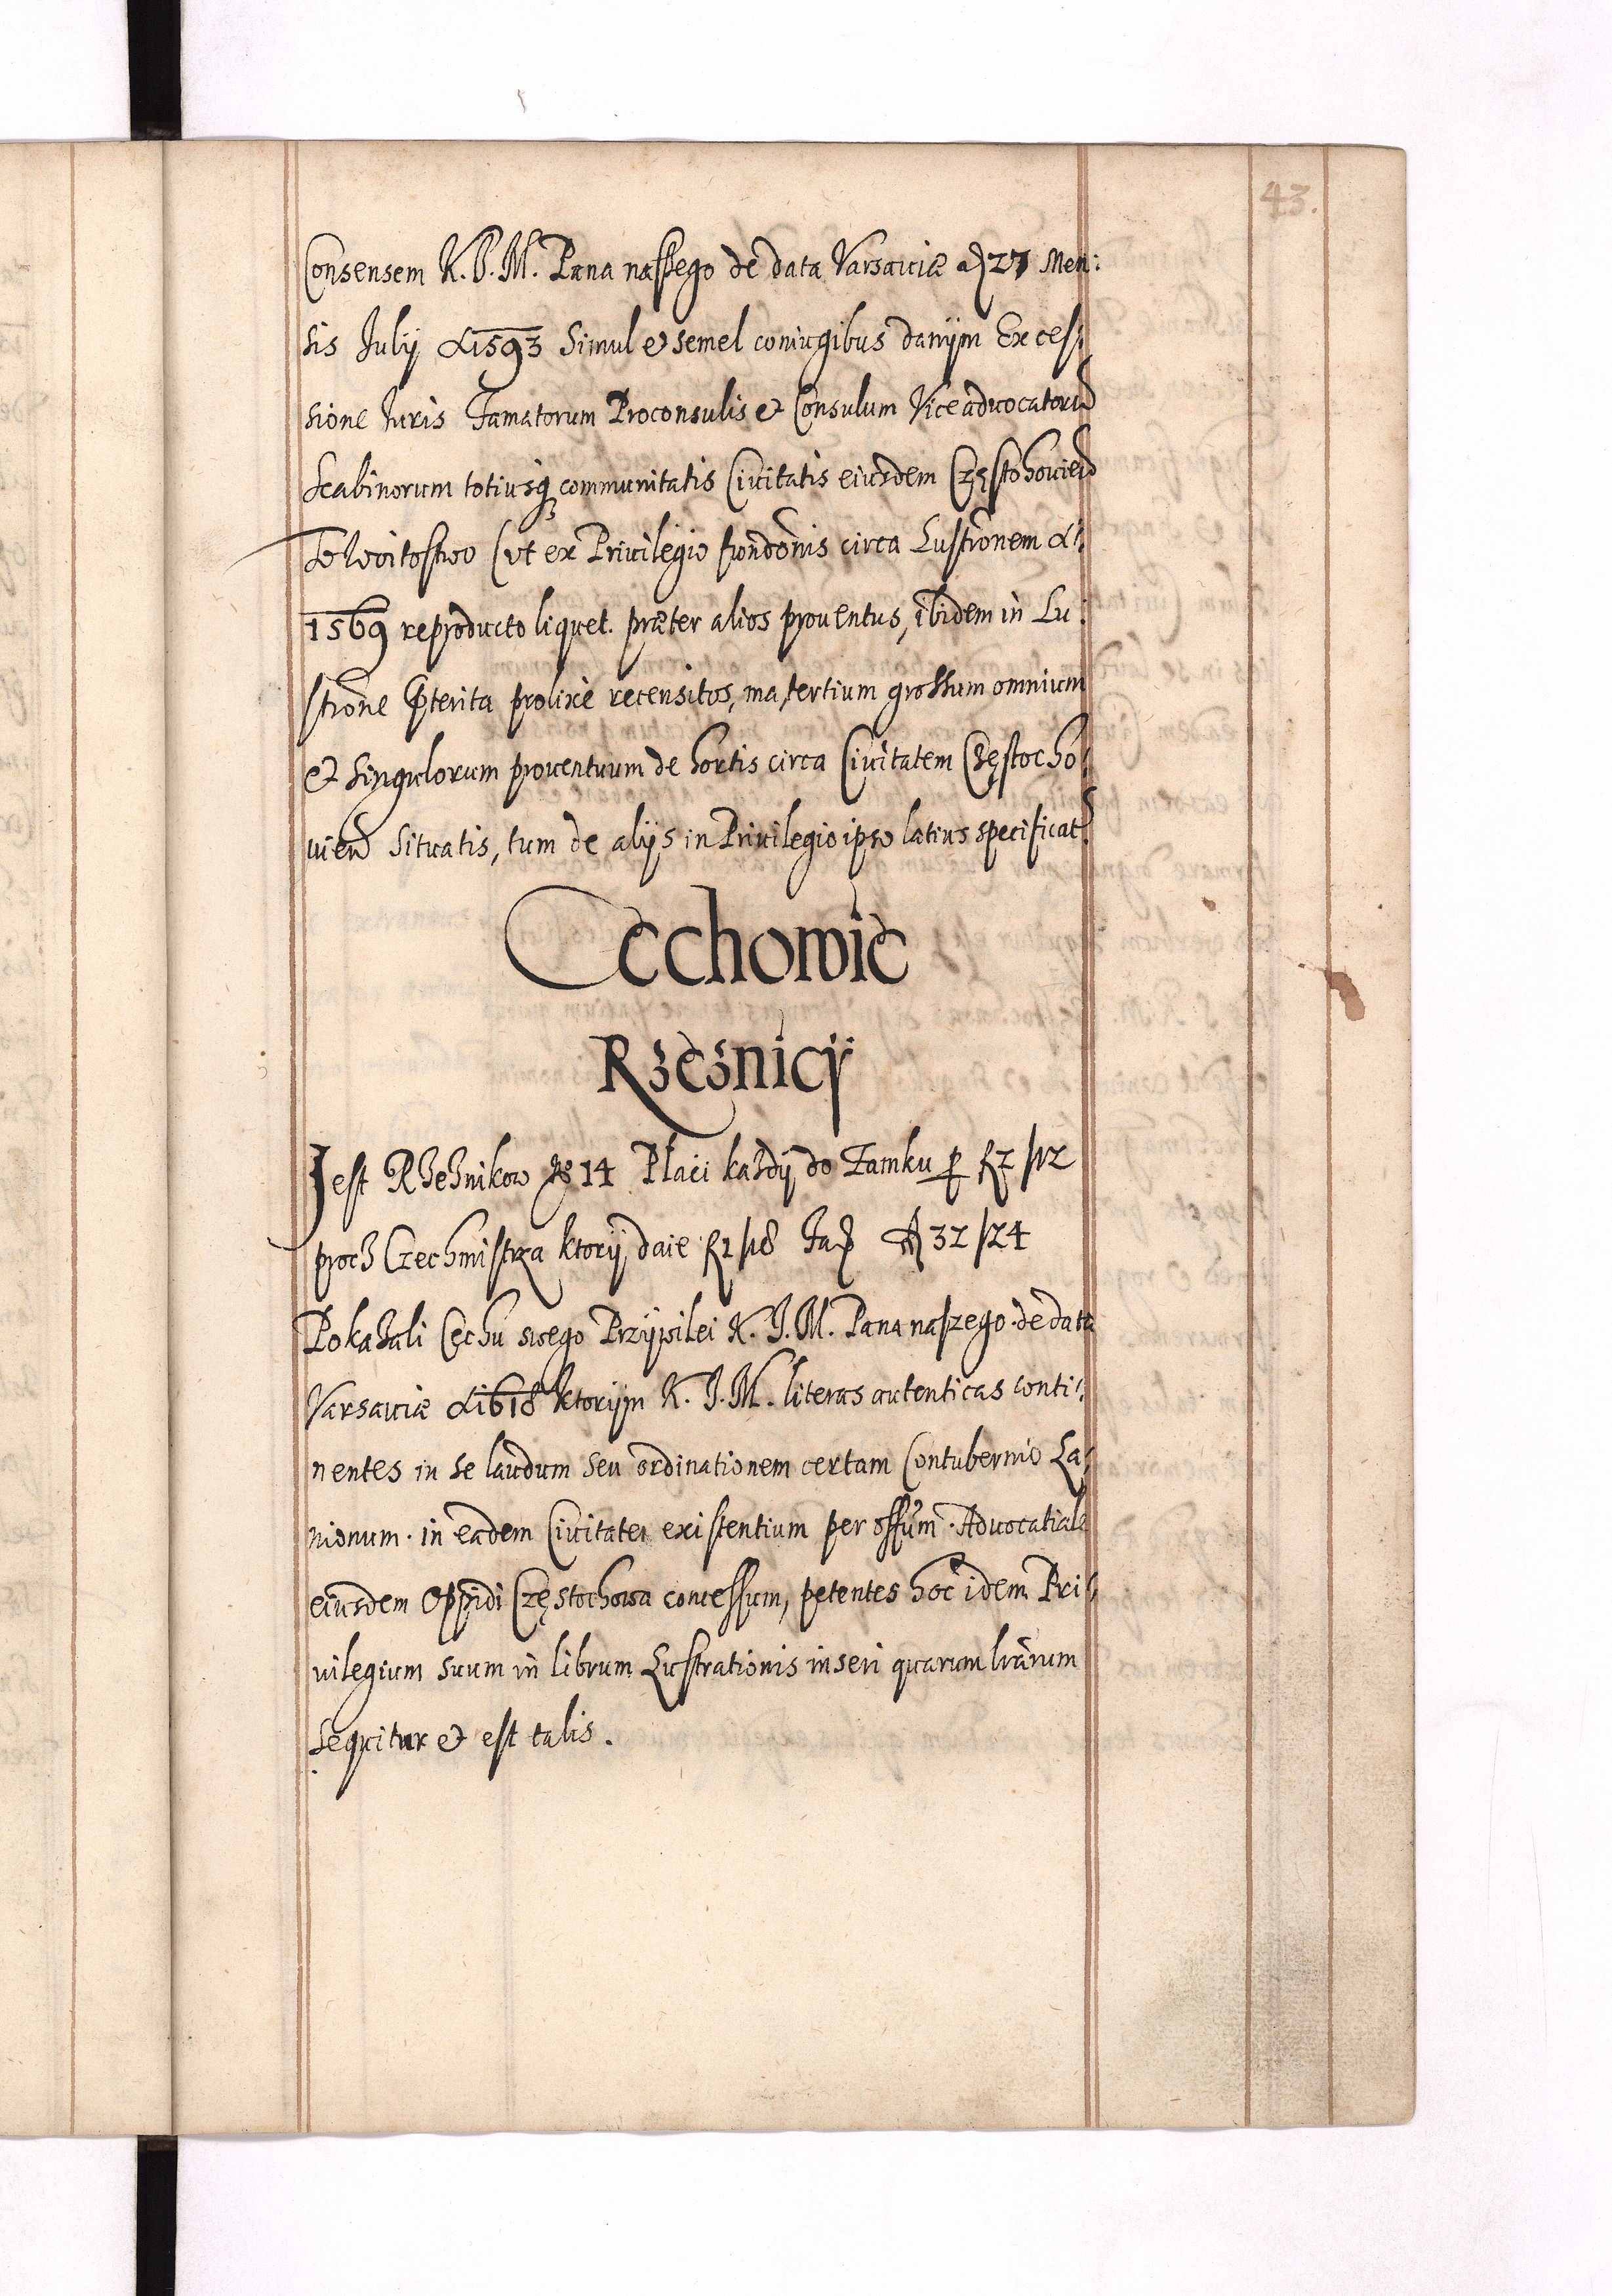 43.
Consensem K. J. M. Pana naszego de data Varsaviæ 27 Men:
sis Julij A 1593 Simul et semel coniugibus danÿm Ex ces:
sione Iuris Famatorum Proconsulis et Consulum Viceadvocatorum
Scabinorum totiusq communitatis Civitatis eiusdem Częstohovien
To Woitostwo (ut ex Privilegio fundonis circa Lustronem A:
1569 reproducto liquet. præter alios proventus, ibidem in Lu:
strone præterita prolixe recensitos, ma, tertium grossum omnium
et singulorum proventuum de hortis circa Civitatem Częstocho:
vien situatis, tum de alijs in Privilegio ipso latius specificat
Cechowie
Rzeznicÿ
Jest Rzeznikow No 14 Płaci kazdÿ do Zamku
procz Czechmistrza ktorÿ daie 32/24
Pokazali Cechu swego Przÿwilei K. J. M. Pana naszego de data
Varsaviæ A 1618 ktorÿm K. J. M. literas autenticas conti:
nentes in se laudum seu ordinationem certam Contubernio La:
nionum in eadem Civitate existentium per offum Advocatiale
eiusdem Oppidi Częstochowa concessum, petentes hoc idem Pri:
vilegium suum in librum Lustrationis inseri quarum lrarum
sequitur et est talis.